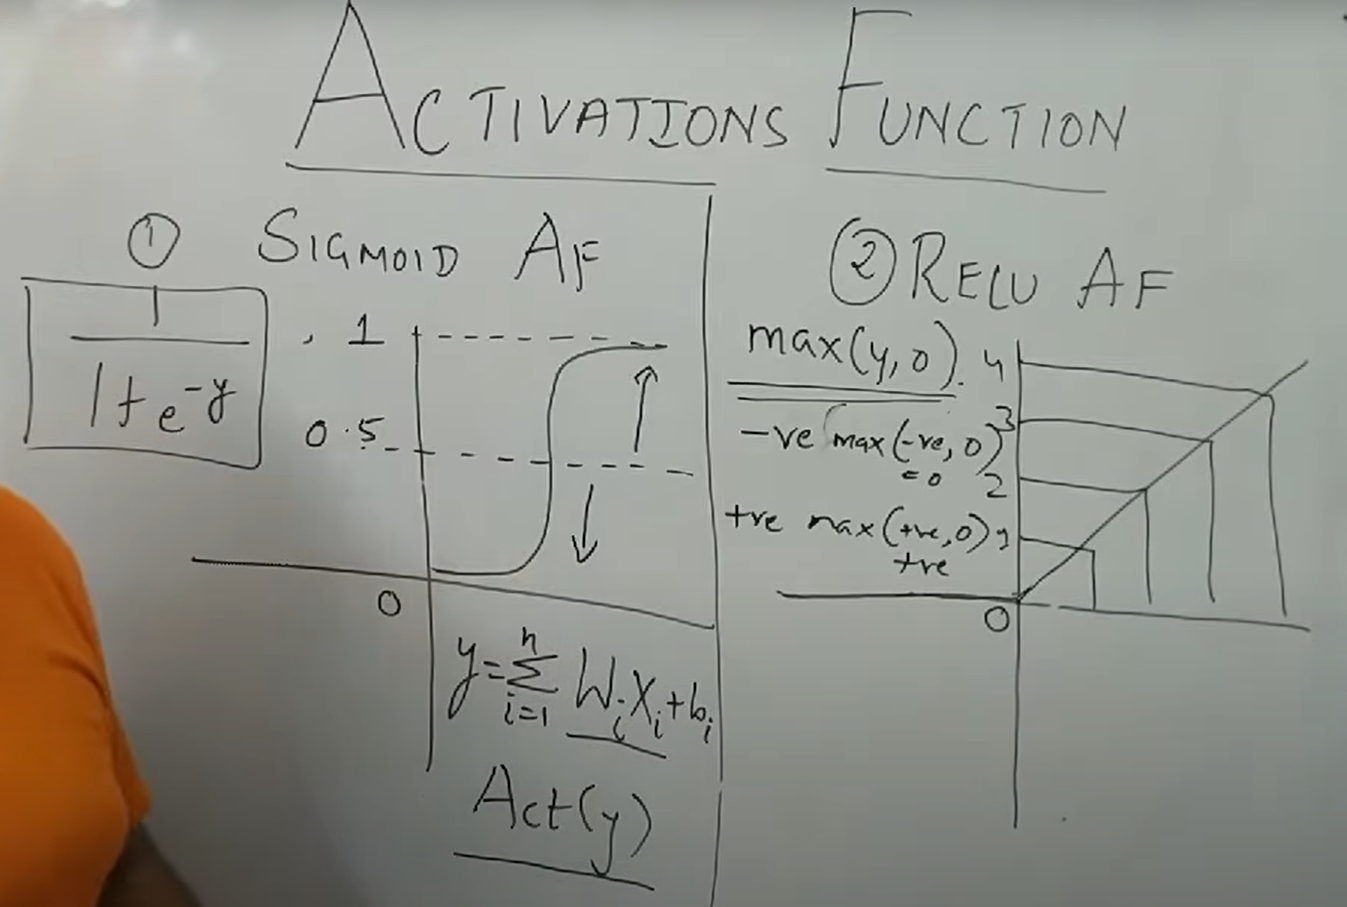 ACTIVATIONS FUNCTION
① SIGMOID AF
1
1 + e^-y
1
0.5
0
y = Σ_{i=1}^{n} W_i X_i + b_i
Act(y)
② RELU AF
max(y, 0)
-ve max(-ve, 0)
= 0
+ve max(+ve, 0)
+ve
4
3
2
1
0